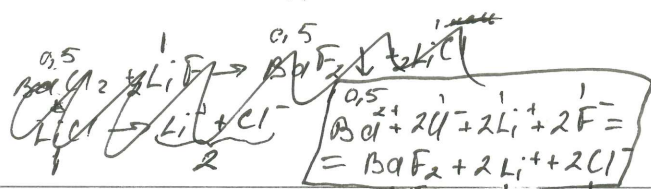 0,5 1 0,5 1
BaCl₂ + 2LiF → BaF₂↓ + 2LiCl
LiCl → Li⁺ + Cl⁻
1 2
0,5 1 1
Ba²⁺ + 2Cl⁻ + 2Li⁺ + 2F⁻ =
= BaF₂ + 2Li⁺ + 2Cl⁻